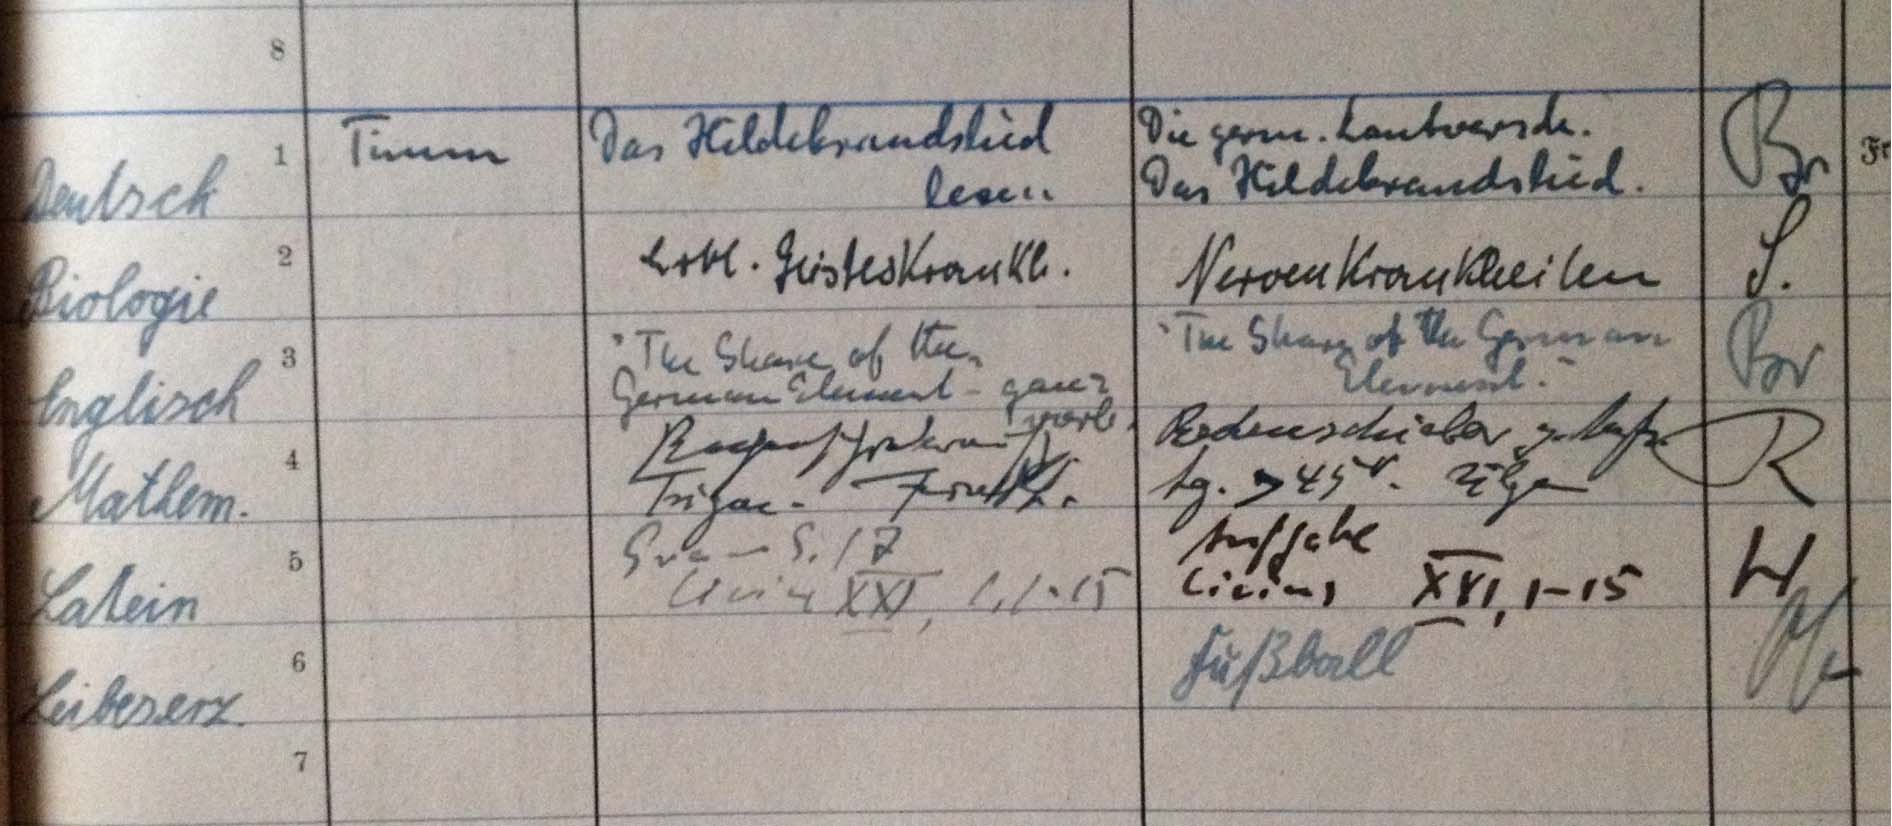 8
1 Timm Das Hildebrandslied Die germ. Lautversch. Br
Deutsch lesen Das Hildebrandslied.
2 Erbl. Geisteskrankh. Nervenkrankheiten S.
Biologie
3 "The Share of the "The Share of the German Br
Englisch German Element - ganz Element."
vorb.
4 Rechenschieber R
Mathem. tg. > 45°.
5 S. 17 Aufgabe H
Latein Livius XXI, 1-15 Livius XXI, 1-15
6 Fußball
Leibeserz.
7